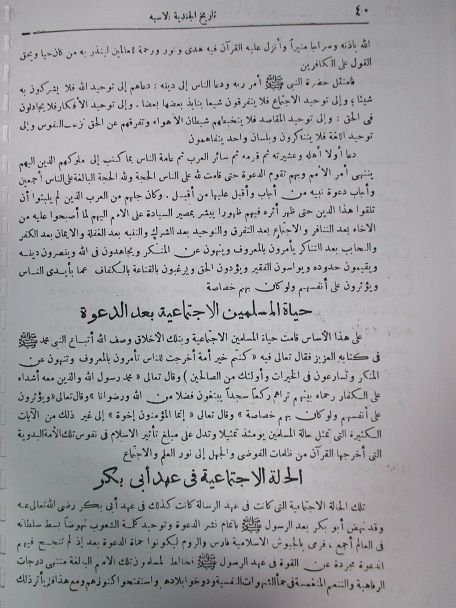 ٤٠ تاريخ الجندية الاسلامية
الله باذنه وسراجا منيراً وأنزل عليه القرآن فيه هدى ونور ورحمة للعالمين لينذر به من كان حيا ويحق
القول على الكافرين
فامتثل حضرة النبي ﷺ أمر ربه ودعا الناس إلى دينه : دعاهم إلى توحيد الله فلا يشركون به
شيئا ؛ وإلى توحيد الاجتماع فلا يتفرقون شيعا ينابذ بعضها بعضا . وإلى توحيد الأفكار فلا يجادلون
في الحق : وإلى توحيد المقاصد فلا يتخبطهم شيطان الاهواء وتفرقهم عن الحق نزعات النفوس وإلى
توحيد اللغة فلا يتناكرون وبلسان واحد يتفاهمون
دعا أولا أهله وعشيرته ثم قومه ثم سائر العرب ثم عامة الناس بما كتب إلى ملوكهم الذين اليهم
ينتهى أمر الأمم وبهم تقوم الدعوة حتى قامت لله على الناس الحجة ولله الحجة البالغة على الناس أجمعين
وأجاب دعوة نبيه من أجاب وأقبل عليها من أقبل . وكان جلهم من العرب الذين لم يلبثوا أن
تلقوا هذا الدين حتى ظهر أثره فيهم ظهورا يبشر بمصير السيادة على الامم اليهم لما أصبحوا عليه من
الاخاء بعد التنافر والاجتماع بعد التفرق والتوحيد بعد الشرك والتنبه بعد الغفلة والايمان بعد الكفر
والتحابب بعد التناكر يأمرون بالمعروف وينهون عن المنكر ويجاهدون في الله وينصرون دينه
ويقيمون حدوده ويواسون الفقير ويؤدون الحق ويرغبون بالقناعة بالكفاف عما بأيدى الناس
ويؤثرون على أنفسهم ولو كان بهم خصاصة
حياة المسلمين الاجتماعية بعد الدعوة
على هذا الأساس قامت حياة المسلمين الاجتماعية وبتلك الأخلاق وصف الله أتباع النبي محمد ﷺ
في كتابه العزيز فقال تعالى فيه « كنتم خير أمة أخرجت للناس تأمرون بالمعروف وتنهون عن
المنكر وتسارعون في الخيرات وأولئك من الصالحين ) وقال تعالى « محمد رسول الله والذين معه أشداء
على الكفار رحماء بينهم تراهم ركعا سجدا يبتغون فضلا من الله ورضوانا » وقال تعالى « ويؤثرون
على أنفسهم ولو كان بهم خصاصة » وقال تعالى « إنما المؤمنون إخوة » إلى غير ذلك من الآيات
الكثيرة التي تمثل حالة المسلمين يومئذ تمثيلا وتدل على مبلغ تأثير الاسلام في نفوس تلك الأمة البدوية
التي أخرجها القرآن من ظلمات الفوضى والجهل إلى نور العلم والاجتماع
الحالة الاجتماعية في عهد أبى بكر
تلك الحالة الاجتماعية التي كانت في عهد الرسالة كانت كذلك في عهد أبى بكر رضى الله تعالى عنه
وقد نهض أبو بكر بعد الرسول ﷺ باتمام نشر الدعوة وتوحيد كلمة الشعوب نهوضا بسط سلطانه
في العالم أجمع ، فرمى بالجيوش الاسلامية فارس والروم ليكونوا حماة الدعوة بعد إذ لم تنجح فيهم
الدعوة مجردة عن القوة في عهد الرسول ﷺ فخالط المسلمون تلك الامم البالغة منتهى درجات
الرفاهية والتنعم المنغمسة في حمأ الشهوات النفسية ودوخوا بلادها واستفتحوا كنوزهم ومع هذا فلم يأثر ذلك